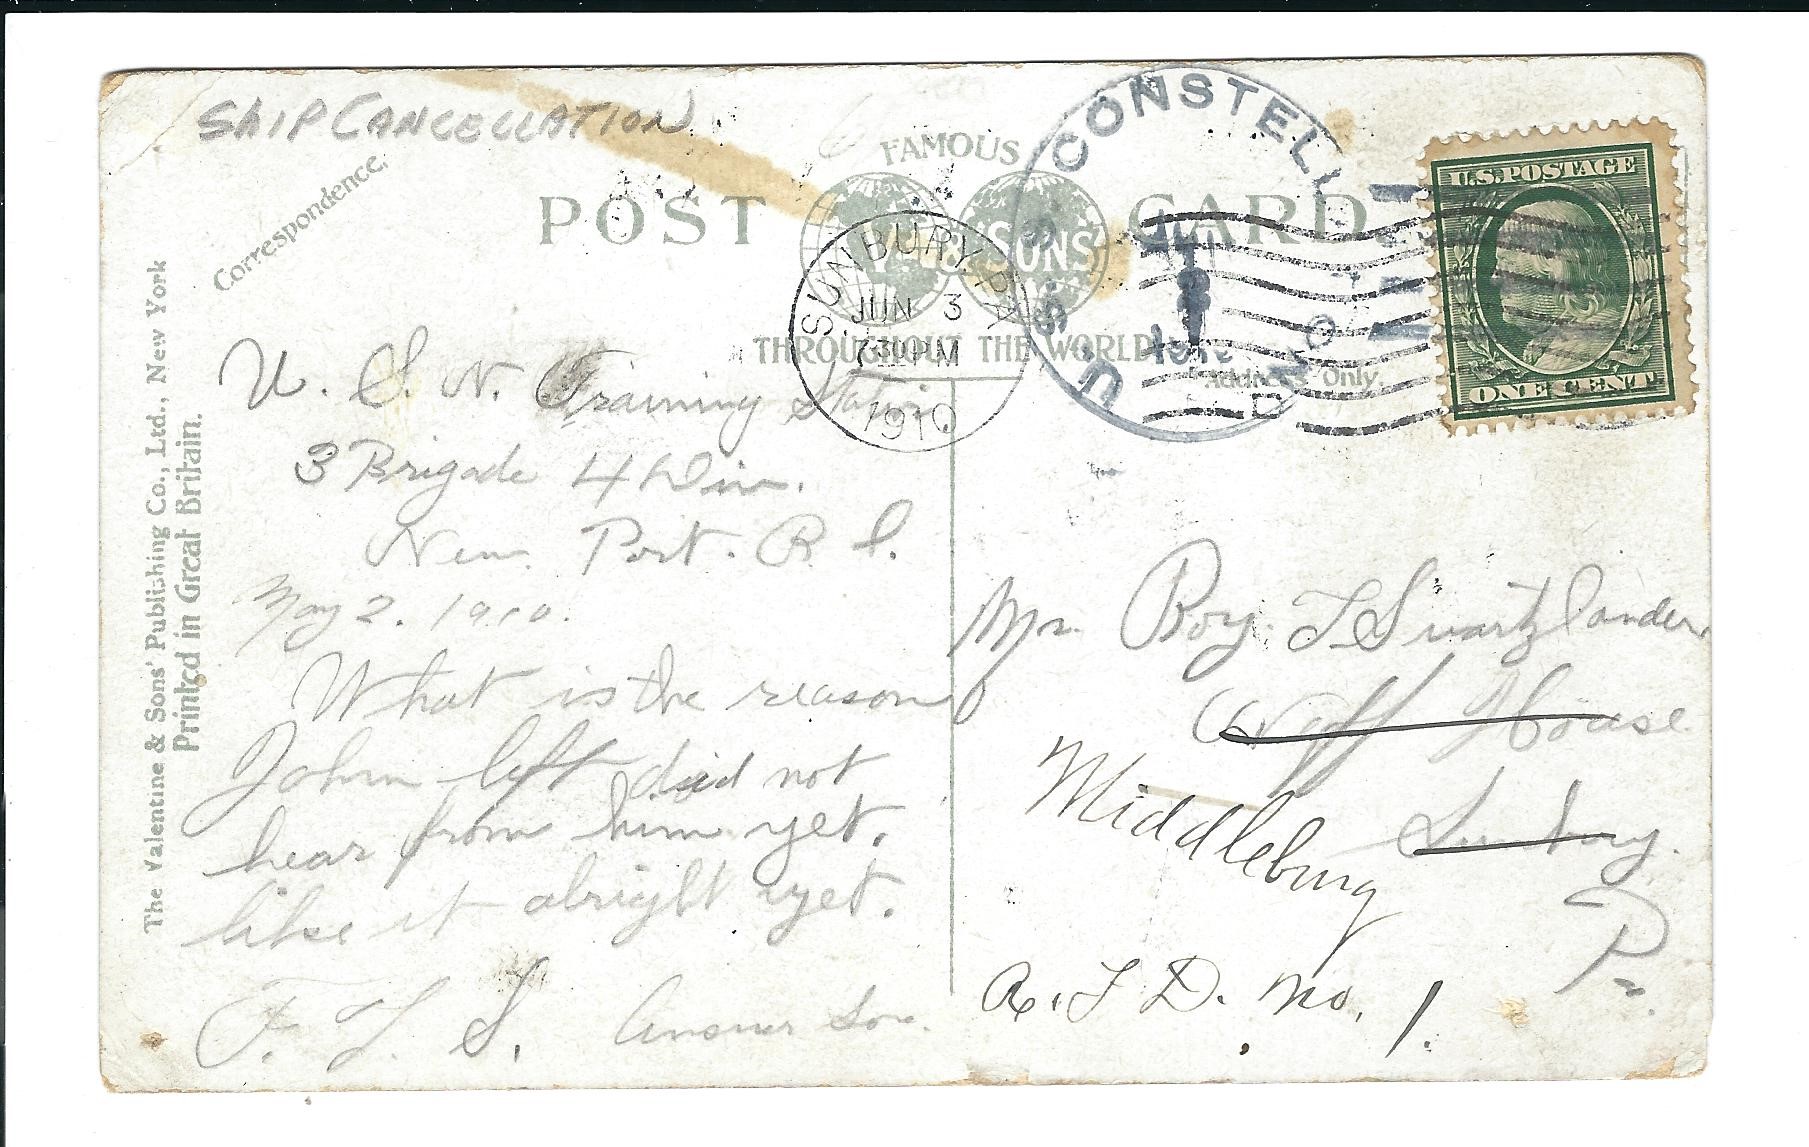 SHIP CANCELLATION
Correspondence.
FAMOUS
POST CARD
SONS'
THROUGHOUT THE WORLD
Address Only.
The Valentine & Sons' Publishing Co., Ltd., New York
Printed in Great Britain.
SUNBURY PA
JUN 3
7 30 PM
1910
U.S.S. CONSTELL
U.S. POSTAGE
ONE CENT
U. S. N. Training Station
3 Brigade 4 Div.
New Port. R I.
May 2. 1910.
What is the reason
John left did not
hear from him yet.
like it alright yet.
F. L. S. Answer Son.
Mr. Roy. T Swartzlander
House
Sunbury.
Pa.
Middleburg
R. F D. No. 1.